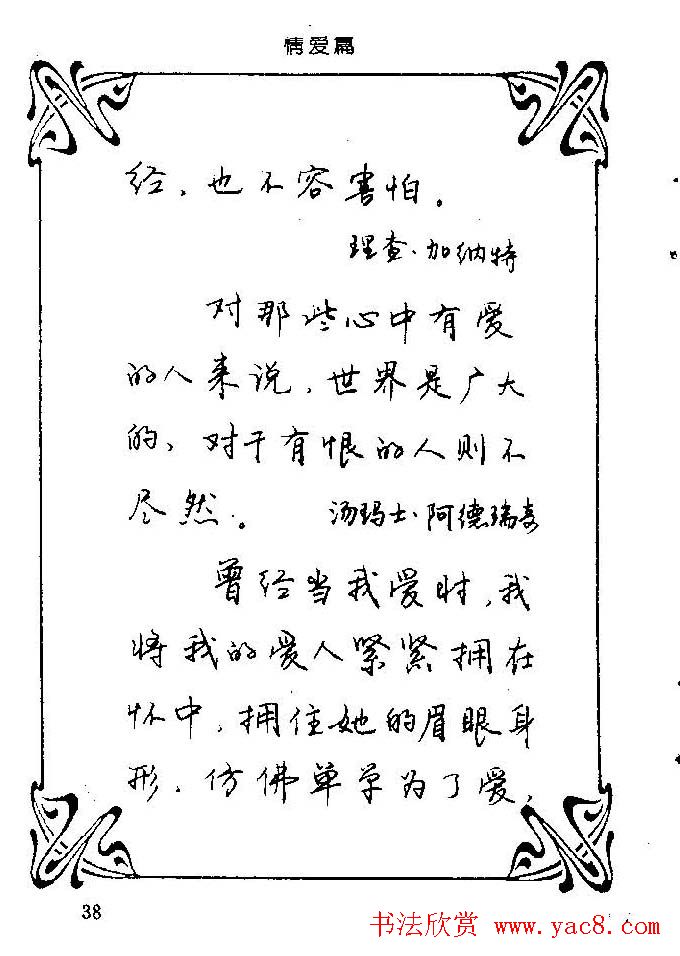 情爱篇
经，也不容害怕。
理查·加纳特
对那些心中有爱
的人来说，世界是广大
的，对于有恨的人则不
尽然。 汤玛士·阿德瑞奇
曾经当我爱时，我
将我的爱人紧紧拥在
怀中，拥住她的眉眼身
形，仿佛单单为了爱，
38
书法欣赏 www.yac8.com